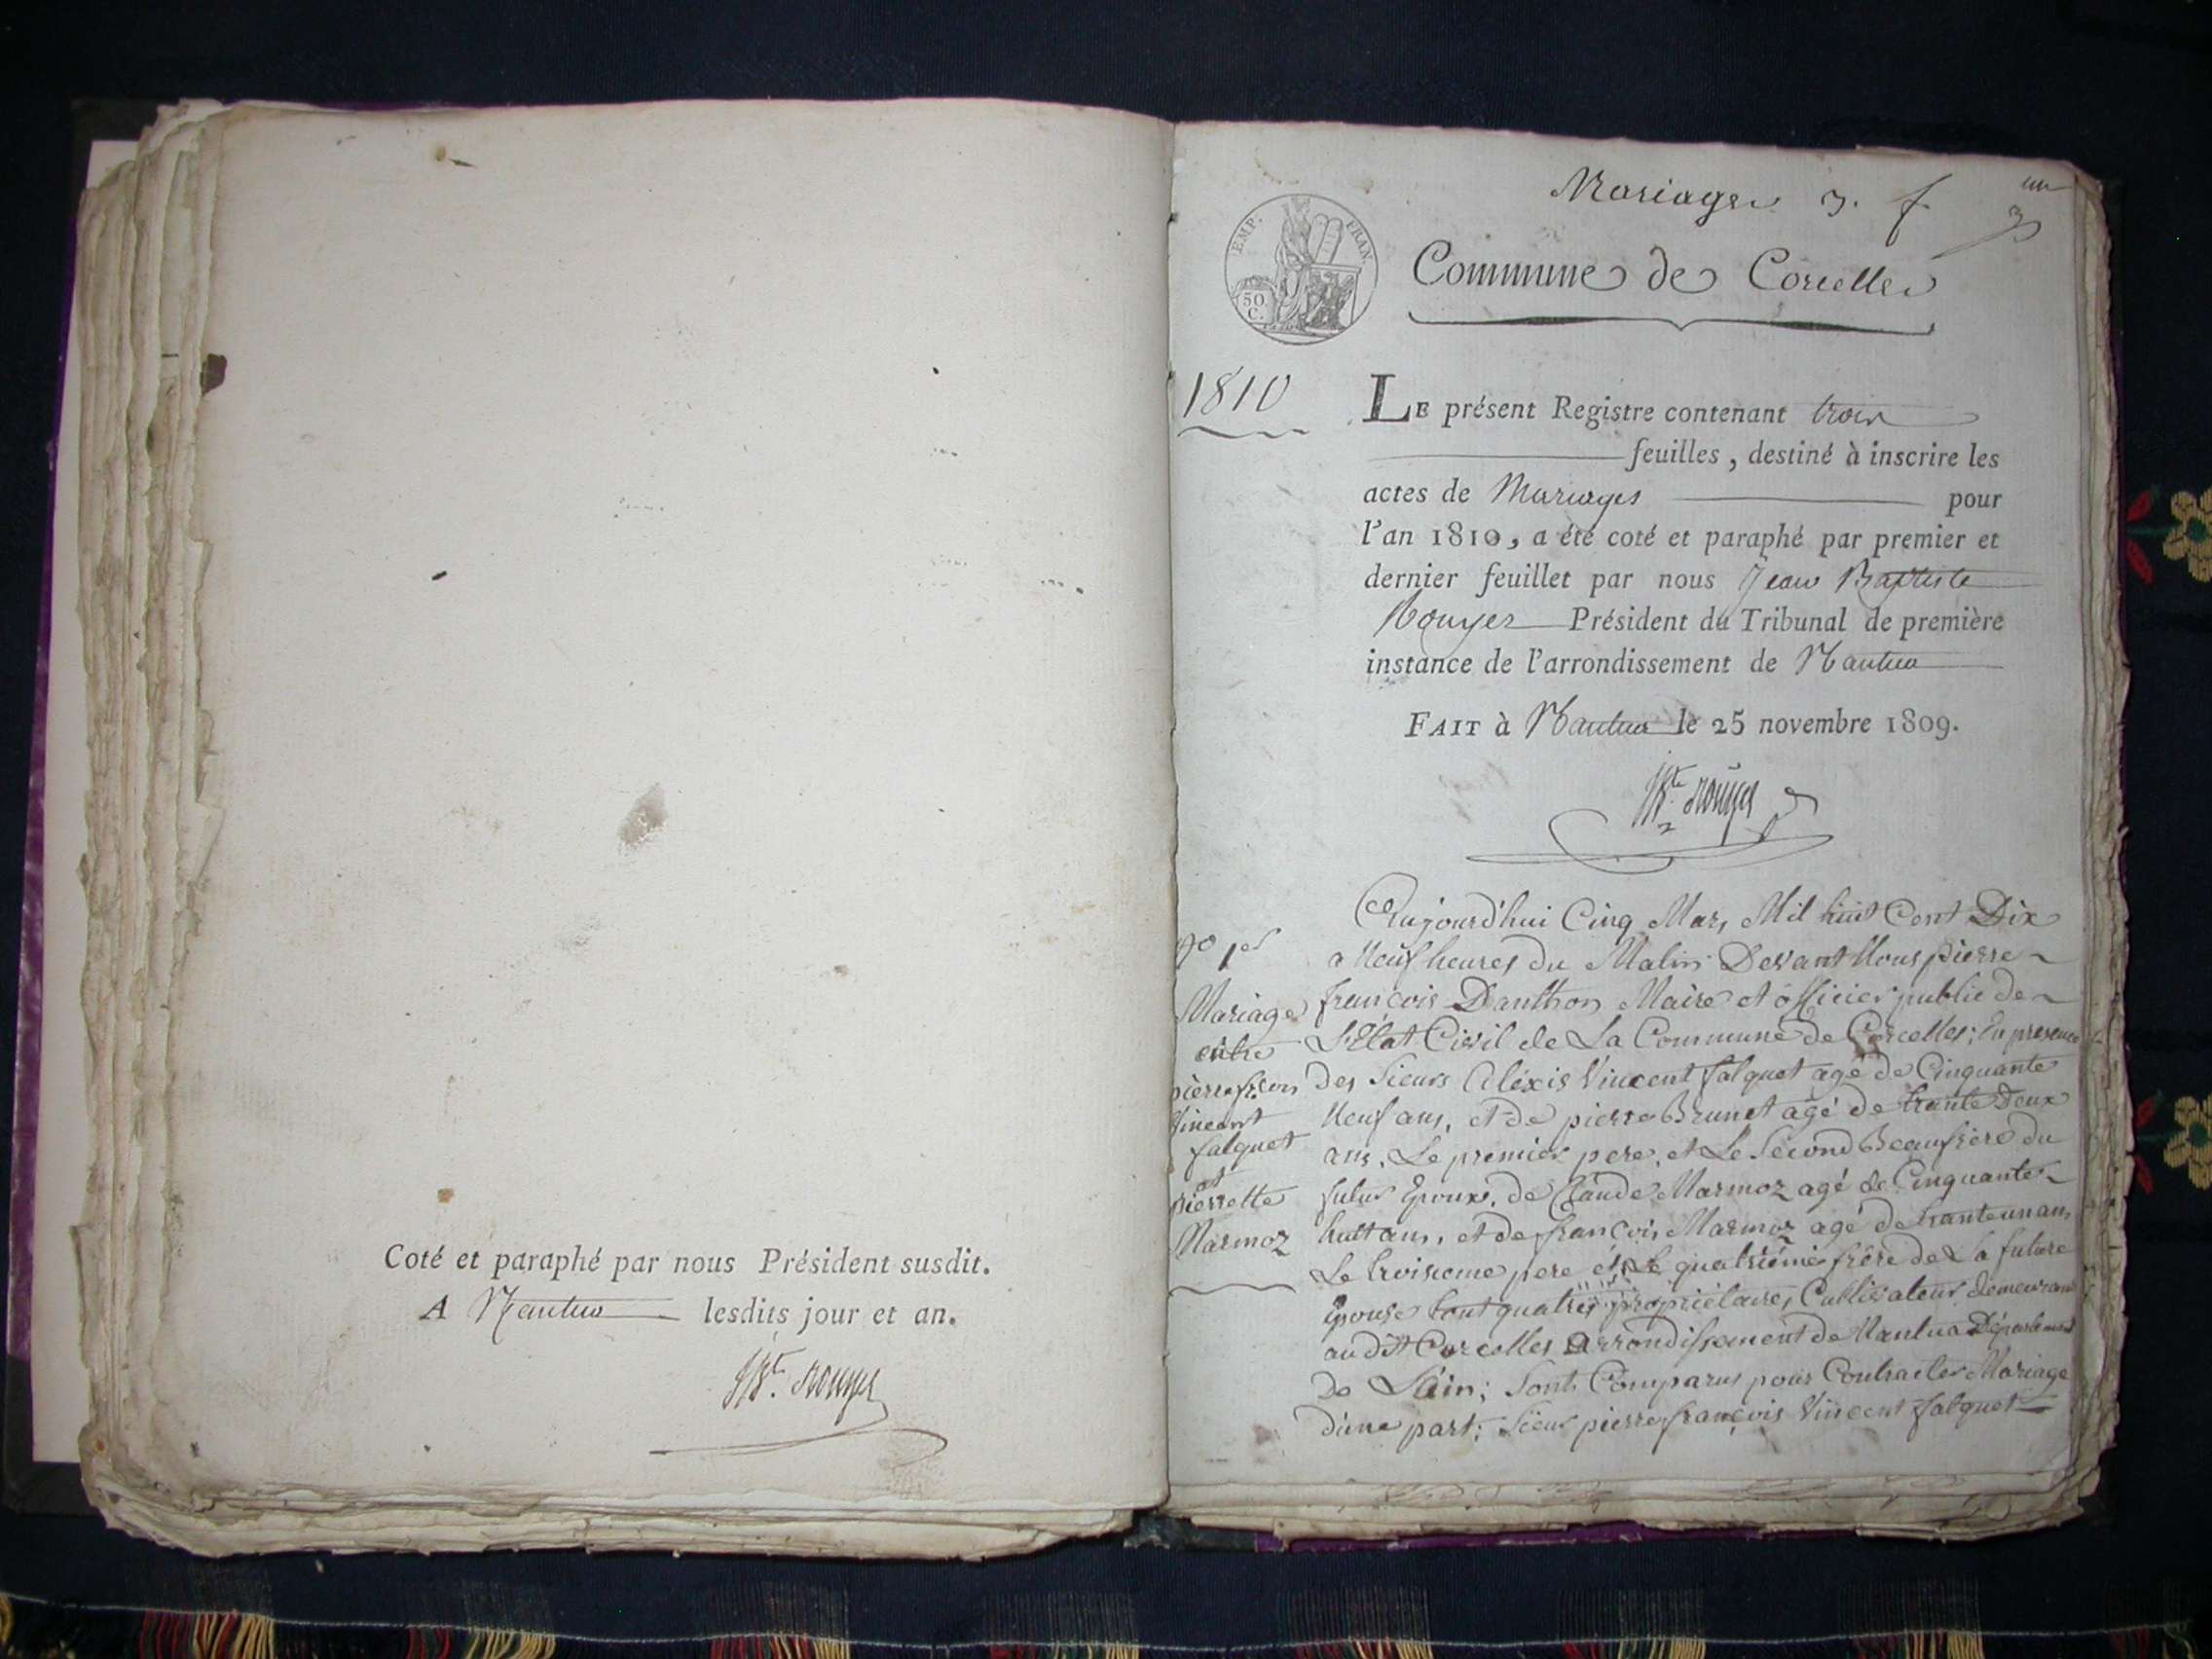 Coté et paraphé par nous Président susdit.
A Nantua lesdits jour et an.
JBte. Rouyer
Mariages 3. f.
un
EMP. FRAN.
50 C.
Commune de Corcelles
1810
LE présent Registre contenant trois
feuilles, destiné à inscrire les
actes de Mariages pour
l'an 1810, a été coté et paraphé par premier et
dernier feuillet par nous Jean Baptiste
Rouyer Président du Tribunal de première
instance de l'arrondissement de Nantua
FAIT à Nantua le 25 novembre 1809.
JBte. Rouyer
No 1er
Mariage
entre
pierre frcois
Vincent
falquet
et
pierrette
Marmoz
Aujourd'hui Cinq Mars Mil huit Cent Dix
a Neuf heures du Matin Devant Nous pierre
françois Danthon Maire et officier public de
L'Etat Civil de La Commune de Corcelles; En presence
des Sieurs Aléxis Vincent falquet agé de Cinquante
Neuf ans, et de pierre Brunet agé de trante Deux
ans, Le premier pere, et Le Second Beaufrere du
futur Epoux, de Claude Marmoz agé de Cinquante
huit ans, et de françois Marmoz agé de tranteun ans
Le troisieme pere et Le quatriéme frère de La future
Epouse tout quatres propriétaires Cultivateurs demeurant
au dit Corcelles Arrondissement de Nantua Département
de Lain; Sont Comparus pour Contracter Mariage
d'une part; Sieur pierre françois Vincent falquet